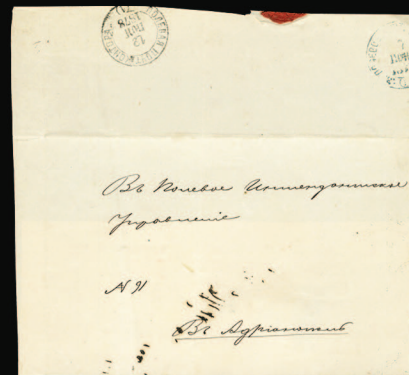 12
ІЮН
1878
Въ Полевое Интендантское
Управленіе
N 91
Въ Адріанополь